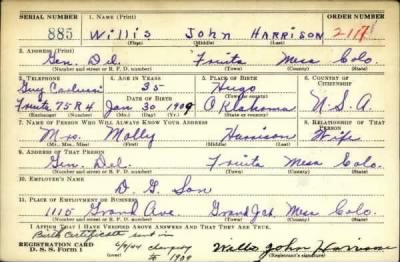 SERIAL NUMBER 1. NAME (Print) ORDER NUMBER
885 Willis John HARRISON
(First) (Middle) (Last)
2. ADDRESS (Print)
Gen. Del. Fruita Mesa Colo.
(Number and street or R. F. D. number) (Town) (County) (State)
3. TELEPHONE 4. AGE IN YEARS 5. PLACE OF BIRTH 6. COUNTRY OF CITIZENSHIP
Guy 35 Hugo
Fruita 75R4 DATE OF BIRTH (Town or county)
Jan 30 1909 Oklahoma U.S.A.
(Exchange) (Number) (Mo.) (Day) (Yr.) (State or country)
7. NAME OF PERSON WHO WILL ALWAYS KNOW YOUR ADDRESS 8. RELATIONSHIP OF THAT PERSON
Mrs. Molly Harrison Wife
(Mr., Mrs., Miss) (First) (Middle) (Last)
9. ADDRESS OF THAT PERSON
Gen. Del. Fruita Mesa Colo.
(Number and street or R. F. D. number) (Town) (County) (State)
10. EMPLOYER'S NAME
Son
11. PLACE OF EMPLOYMENT OR BUSINESS
1110 Grand Ave Grand Jct. Mesa Colo.
(Number and street or R. F. D. number) (Town) (County) (State)
I AFFIRM THAT I HAVE VERIFIED ABOVE ANSWERS AND THAT THEY ARE TRUE.
Birth Certificate sent in
REGISTRATION CARD
D. S. S. Form 1 1909 Willis John Harrison
(Registrant's signature)